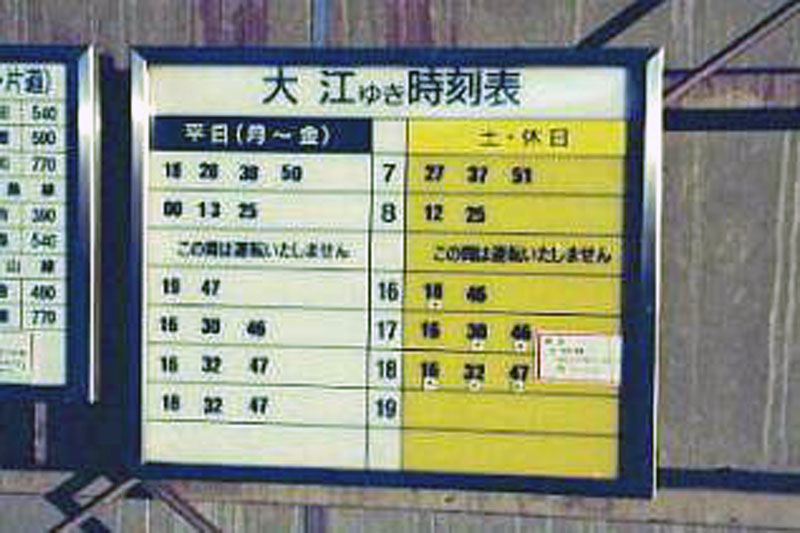 片道)
540
590
770
390
540
山 線
480
770
大 江ゆき時刻表
平日(月～金) 土・休日
18 28 38 50 7 27 37 51
00 13 25 8 12 25
この間は運転いたしません この間は運転いたしません
19 47 16 18 46
16 30 46 17 16 30 46
16 32 47 18 16 32 47
18 32 47 19